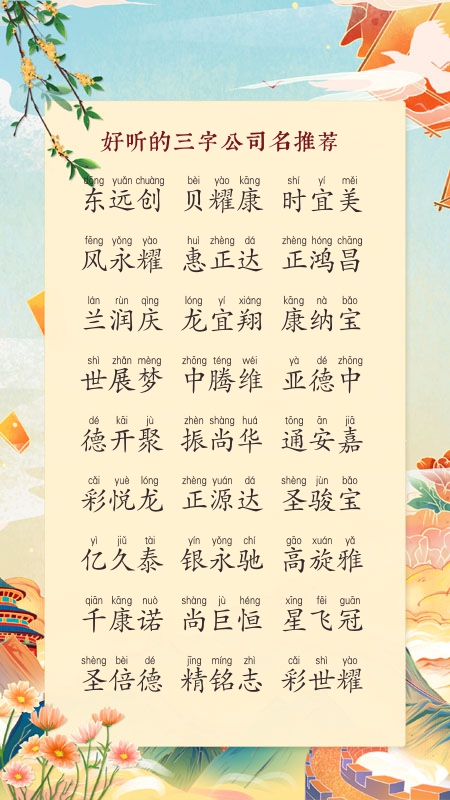 好听的三字公司名推荐
dōng yuǎn chuàng bèi yào kāng shí yí měi
东远创 贝耀康 时宜美
fēng yǒng yào huì zhèng dá zhèng hóng chāng
风永耀 惠正达 正鸿昌
lán rùn qìng lóng yí xiáng kāng nà bǎo
兰润庆 龙宜翔 康纳宝
shì zhǎn mèng zhōng téng wéi yà dé zhōng
世展梦 中腾维 亚德中
dé kāi jù zhèn shàng huá tōng ān jiā
德开聚 振尚华 通安嘉
cǎi yuè lóng zhèng yuán dá shèng jùn bǎo
彩悦龙 正源达 圣骏宝
yì jiǔ tài yín yǒng chí gāo xuán yǎ
亿久泰 银永驰 高旋雅
qiān kāng nuò shàng jù héng xīng fēi guān
千康诺 尚巨恒 星飞冠
shèng bèi dé jīng míng zhì cǎi shì yào
圣倍德 精铭志 彩世耀